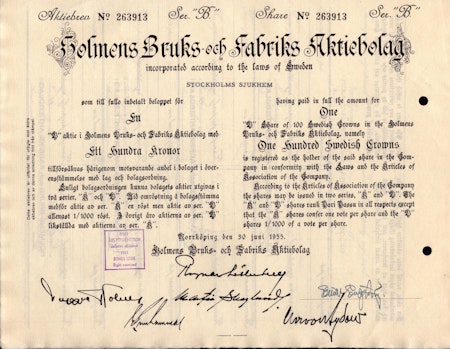 Aktiebrev No 263913 Ser. "B" Share No 263913 Ser. "B"
Holmens Bruks- och Fabriks Aktiebolag
incorporated according to the laws of Sweden
STOCKHOLMS SJUKHEM
som till fullo inbetalt beloppet för
En
"B" aktie i Holmens Bruks- och Fabriks Aktiebolag med
Ett Hundra Kronor
tillförsäkras härigenom motsvarande andel i bolaget i över-
ensstämmelse med lag och bolagsordning.
Enligt bolagsordningen kunna bolagets aktier utgivas i
två serier, "A" och "B". Vid omröstning å bolagsstämma
medför aktie av ser. "A" en röst men aktie av ser. "B"
allenast 1/1000 röst. I övrigt äro aktierna av ser. "B"
likställda med aktierna av ser. "A".
having paid in full the amount for
One
"B" Share of 100 Swedish Crowns in the Holmens
Bruks- och Fabriks Aktiebolag, namely
One Hundred Swedish Crowns
is registered as the holder of the said share in the Com-
pany in conformity with the Laws and the Articles of
Association of the Company.
According to the Articles of Association of the Company
the shares may be issued in two series, "A" and "B". The
"A" and "B" shares rank Pari Passu in all respects except
that the "A" shares confer one vote per share and the "B"
shares 1/1000 of a vote per share.
Norrköping den 30 juni 1955.
Holmens Bruks- och Fabriks Aktiebolag